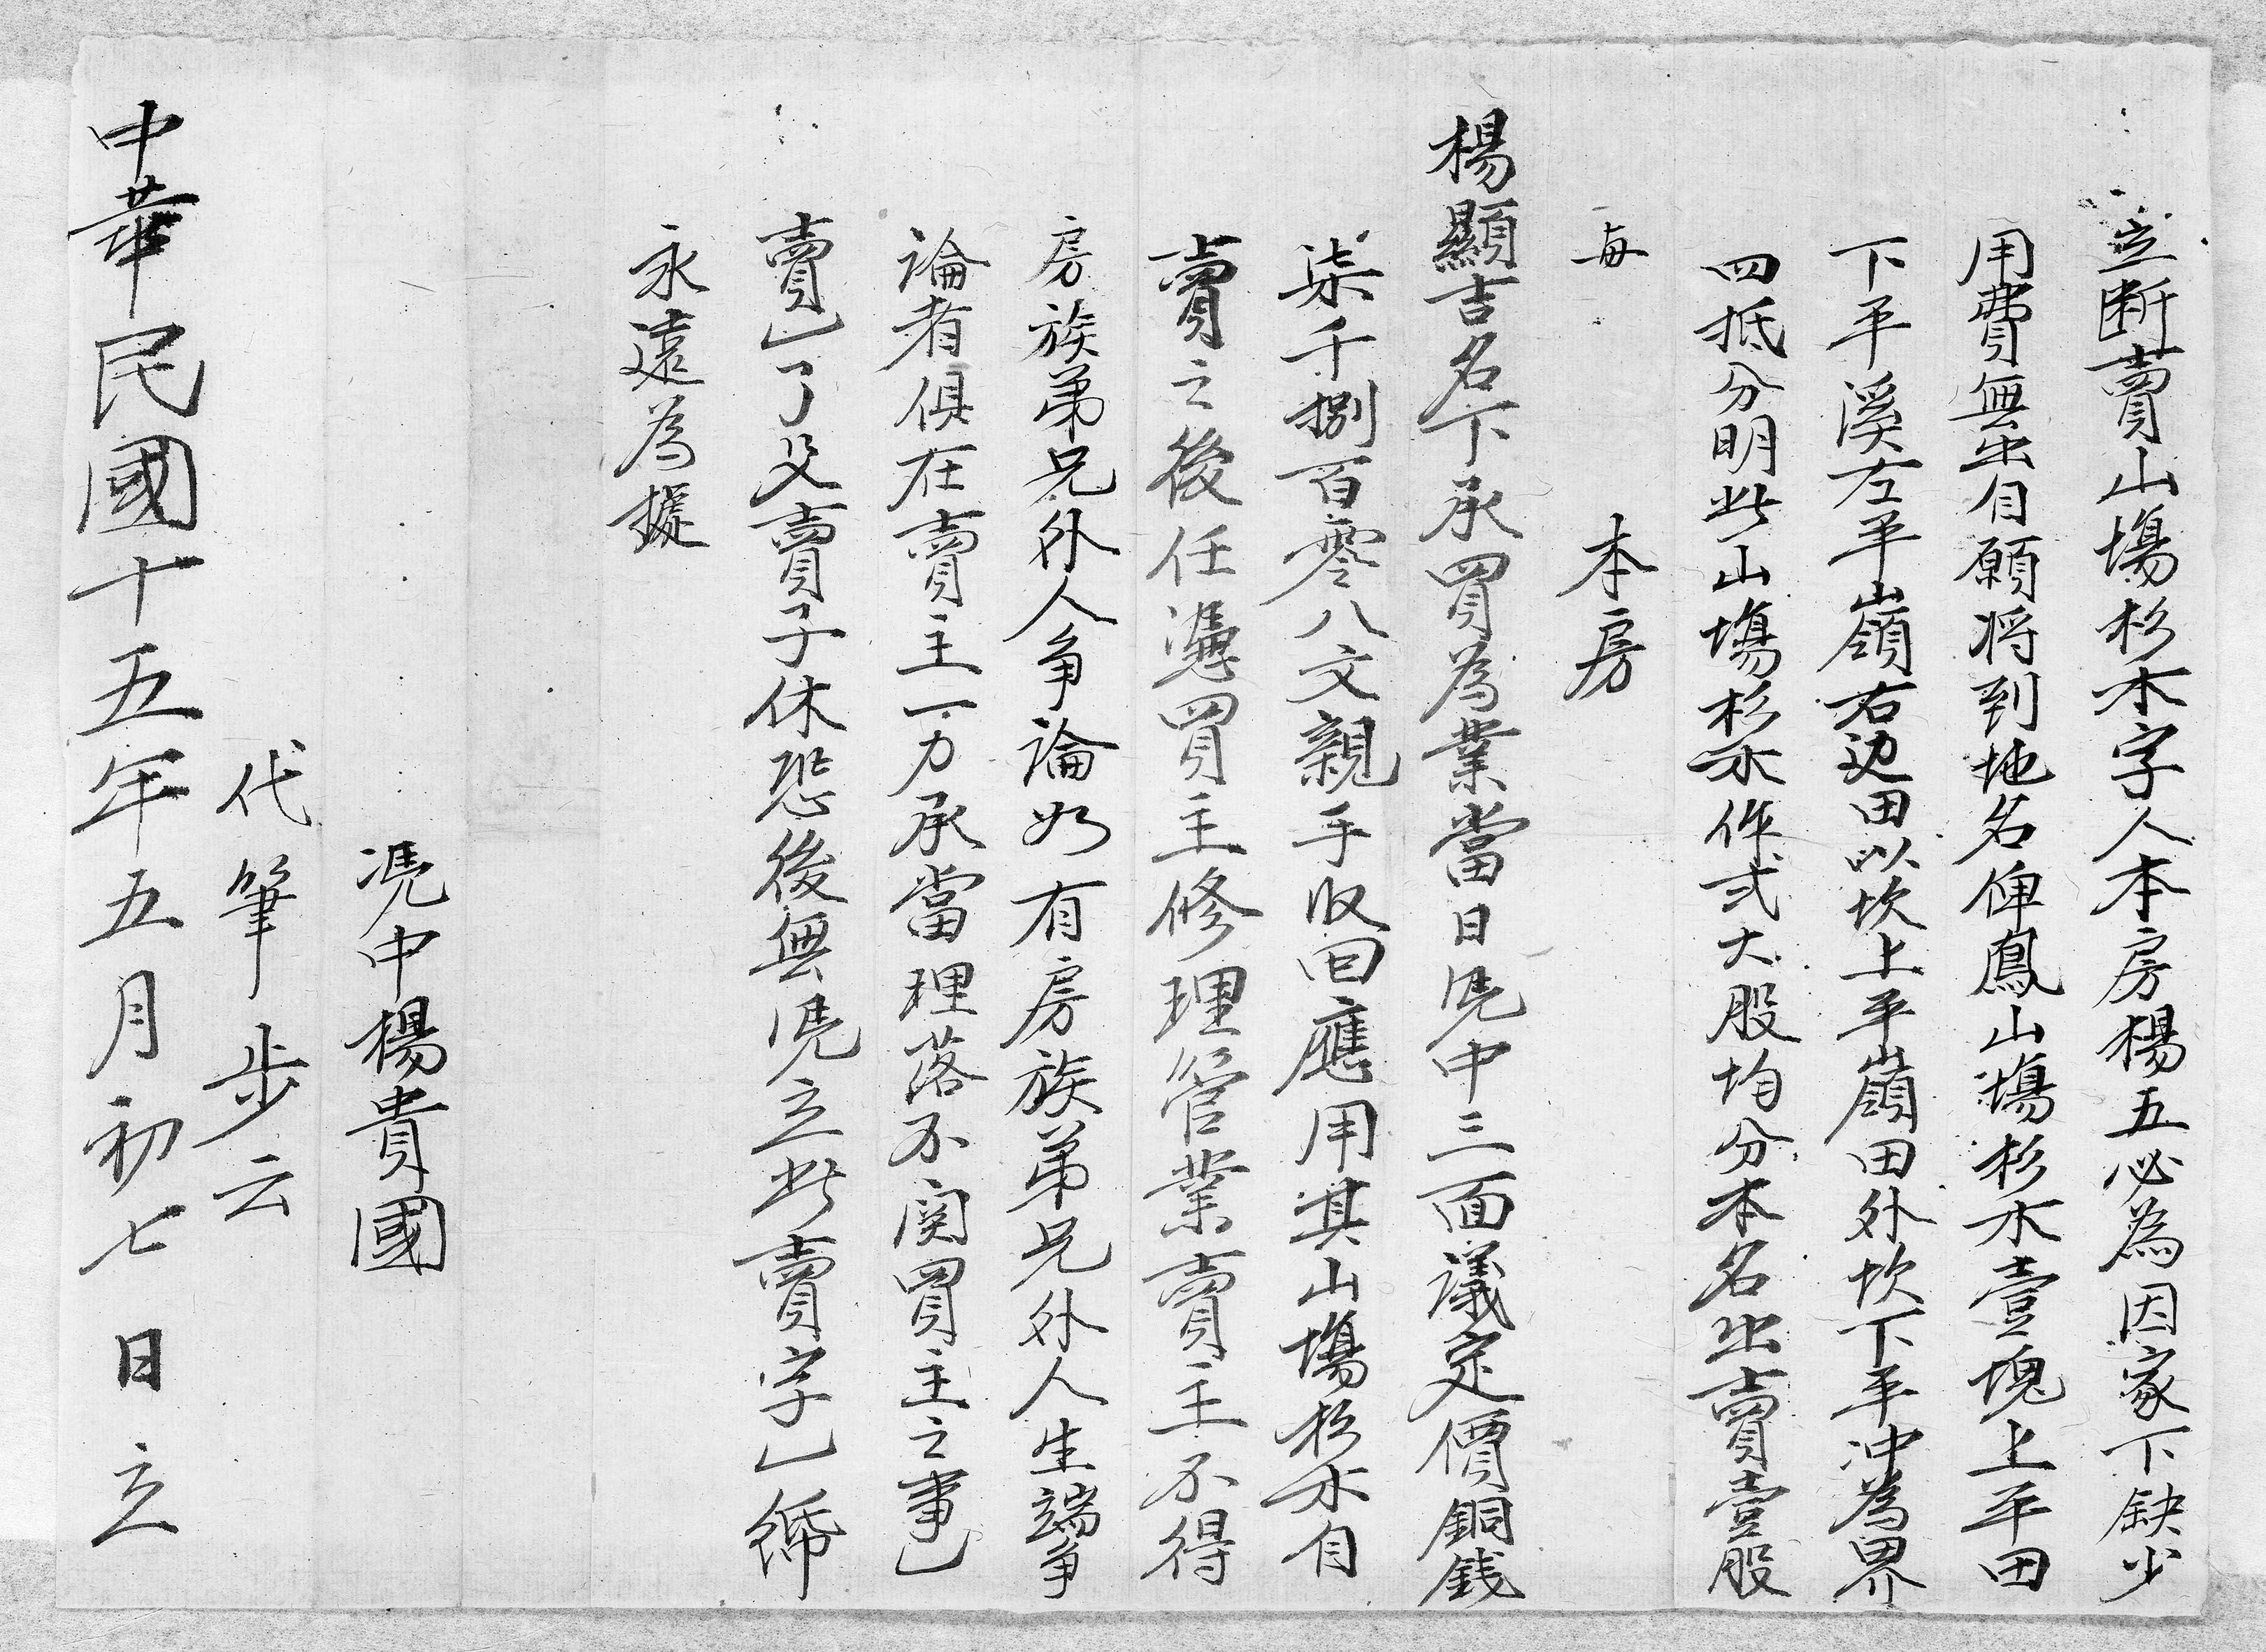 立断賣山塲杉木字人本房楊五必為因家下缺少
用費無出自願将到地名俾鳳山塲杉木壹塊上平田
下平溪左平嶺右边田以坎上平嶺田外坎下平冲為界
四抵分明此山塲杉木作弍大股均分本名出賣壹股
每 本房
楊顯吉名下承買為業當日凴中三面議定價銅錢
柒千捌百零八文親手收回應用其山塲杉木自
賣之後任憑買主修理管業賣主不得
房族弟兄外人争論如有房族弟兄外人生端争
論者俱在賣主一力承當理落不関買主之事乚
賣乚了父賣子休恐後無凴立此賣字乚帋
永遠為據
凴中楊貴國
代筆步云
中華民國十五年五月初七日立